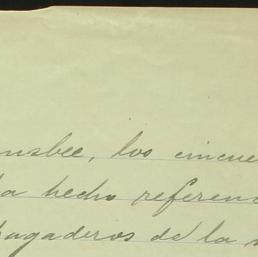 nsbee, los cincue
ha hecho referenc
pagaderos de la